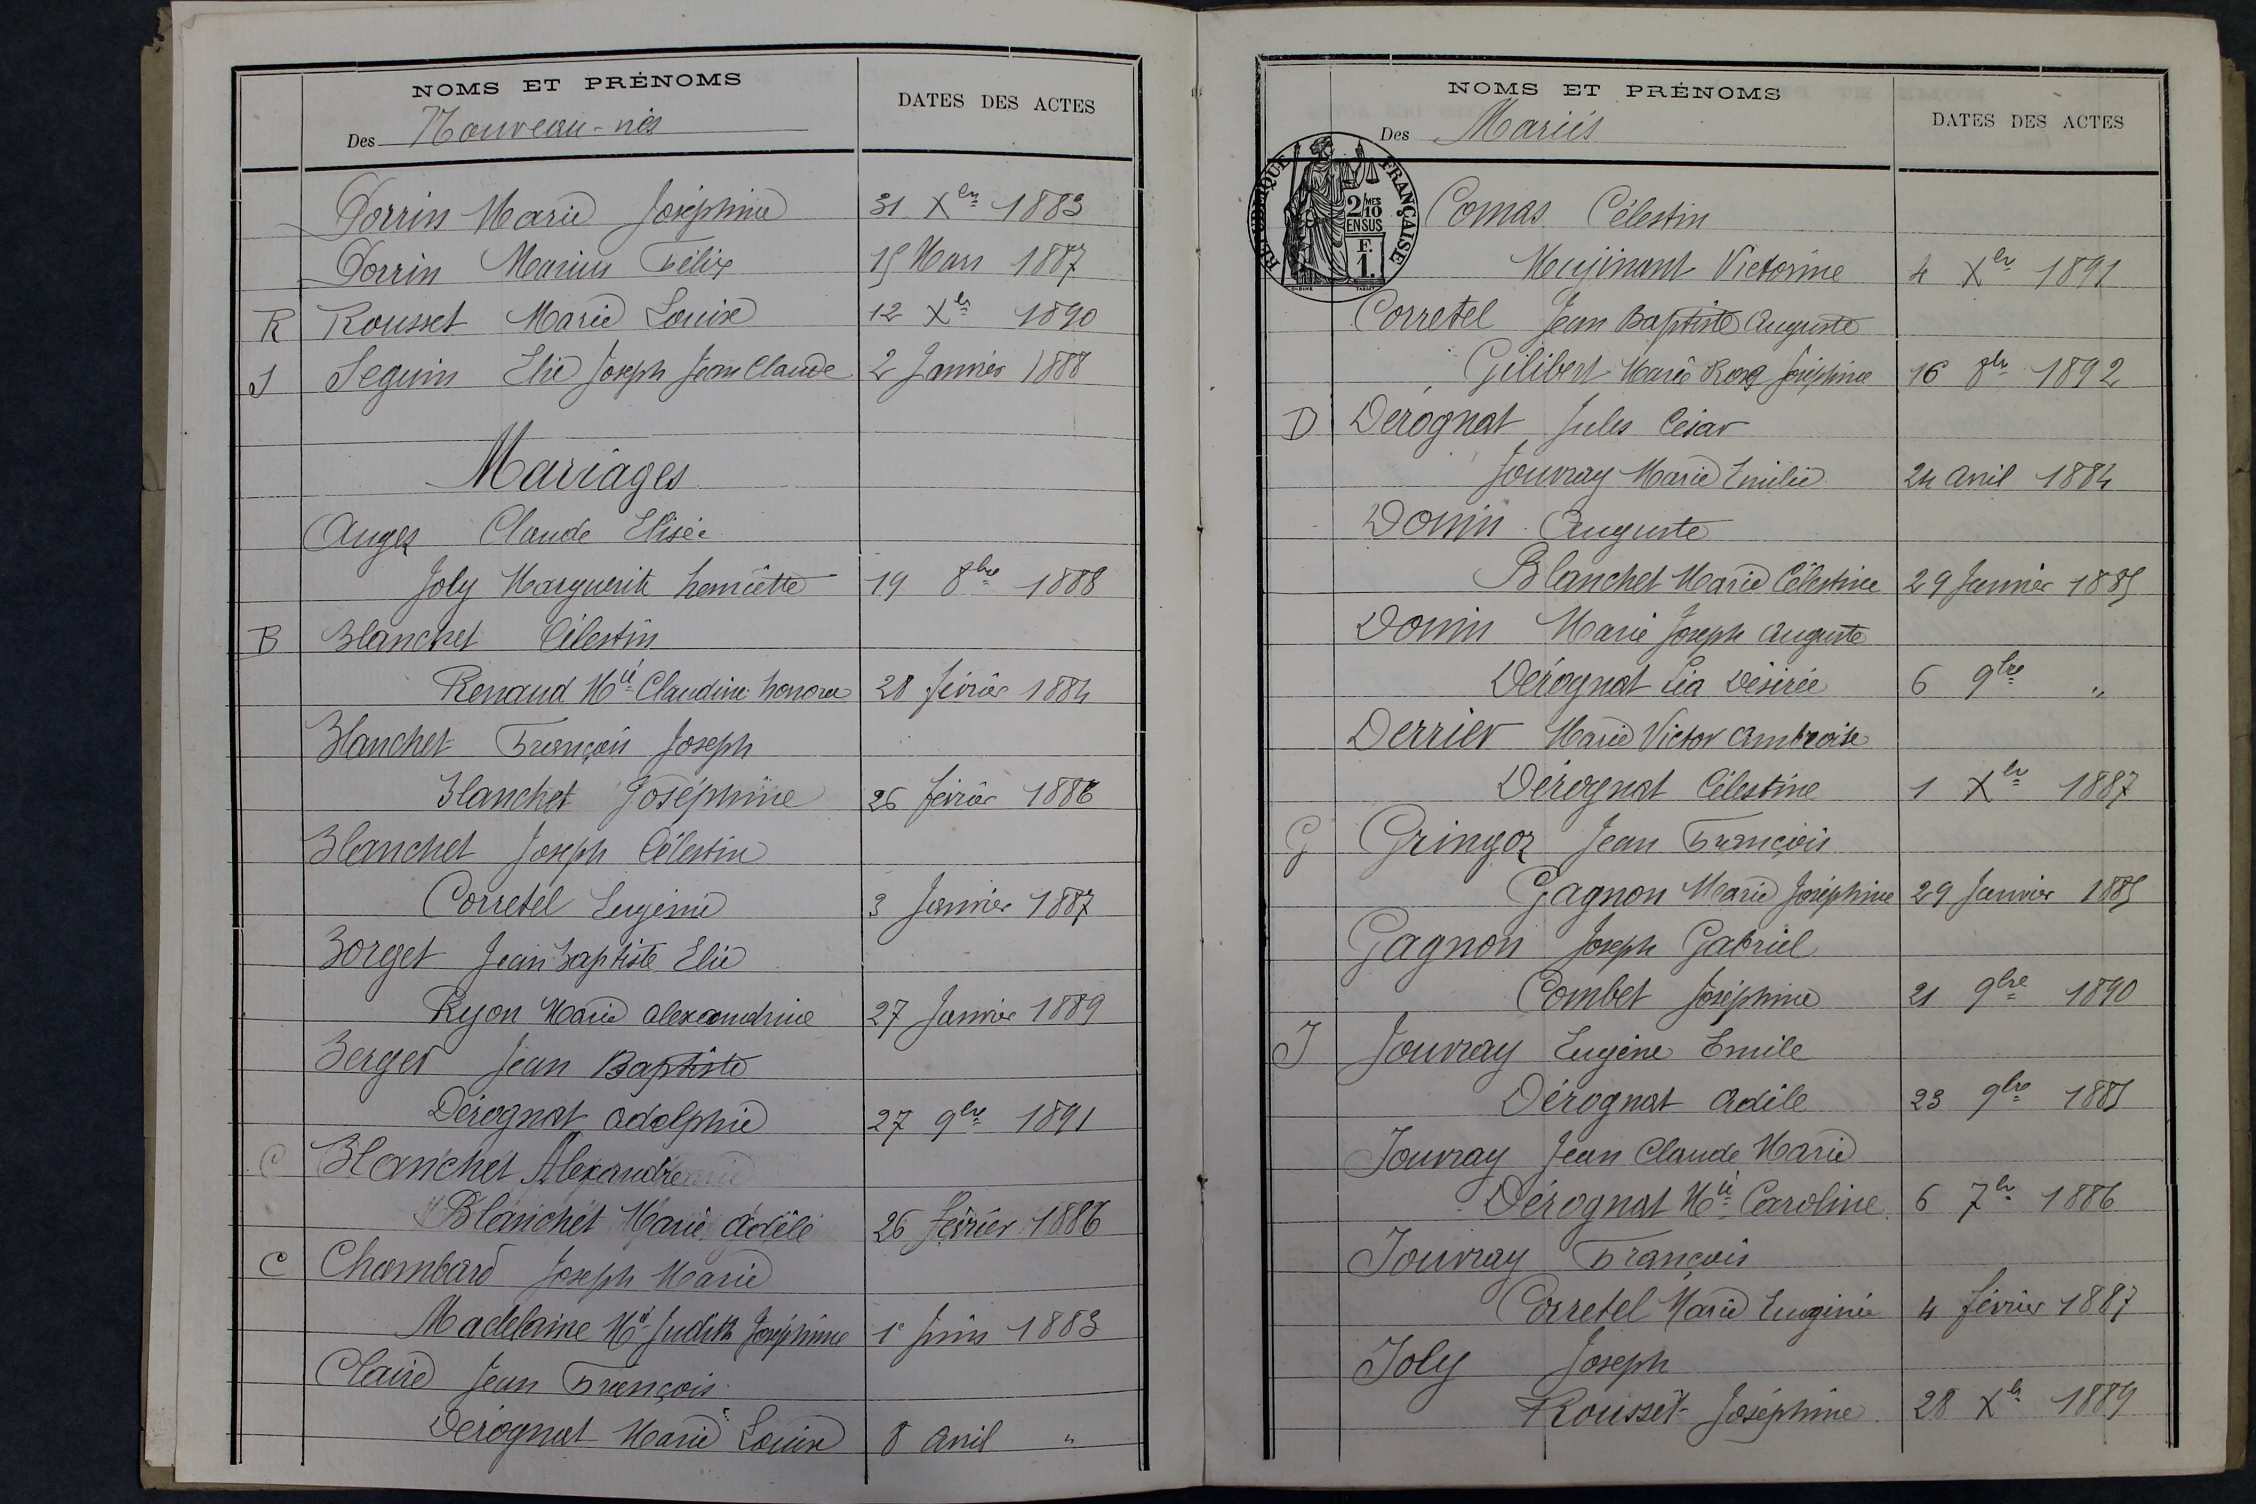 NOMS ET PRÉNOMS
DATES DES ACTES
Des Nouveau-nés
Dorrin Marie Joséphine 31 Xbre 1883
Dorrin Marius Félix 15 Mars 1887
R Rousset Marie Louise 12 Xbre 1890
S Seguin Elie Joseph Jean Claude 2 Janvier 1888
Mariages
Auger Claude Elisée
Joly Marguerite henriette 19 8bre 1888
B Blanchet Célestin
Renaud Mie Claudine honorée 28 février 1884
Blanchet François Joseph
Blanchet Joséphine 26 février 1886
Blanchet Joseph Célestin
Corretel Eugénie 3 Janvier 1887
Borget Jean Baptiste Elie
Ryon Marie alexandrine 27 Janvier 1889
Berger Jean Baptiste
Dérognat adolphie 27 9bre 1891
C Blanchet Alexandre
Blanchet Marie adèle 26 février 1886
C Chambard Joseph Marie
Madelaine Mie Judith Joséphine 1e Juin 1883
Claire Jean François
Dérognat Marie Louise 8 avril "
NOMS ET PRÉNOMS
DATES DES ACTES
Des Mariés
RÉPUBLIQUE FRANÇAISE
2/10MES
EN SUS
F.
1.
Comas Célestin
Victorine 4 Xbre 1891
Corretel Jean Baptiste auguste
Gilibert Marie Rose Joséphine 16 8bre 1892
D Dérognat Jules César
Jouvray Marie Emilie 24 avril 1884
Donin Auguste
Blanchet Marie Célestine 29 Janvier 1885
Donin Marie Joseph auguste
Dérognat Léa Désirée 6 9bre "
Derrier Marie Victor ambroise
Dérognat Célestine 1 Xbre 1887
G Gringoz Jean François
Gagnon Marie Joséphine 29 Janvier 1885
Gagnon Joseph Gabriel
Combet Joséphine 21 9bre 1890
J Jouvray Eugène Emile
Dérognat adèle 23 9bre 1885
Jouvray Jean Claude Marie
Dérognat Mie Caroline 6 7bre 1886
Jouvray François
Corretel Marie Eugénie 4 février 1887
Joly Joseph
Rousset Joséphine 28 Xbre 1889